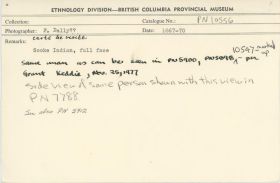 ETHNOLOGY DIVISION—BRITISH COLUMBIA PROVINCIAL MUSEUM
Collection: Catalogue No.: PN 10556
Photographer: F. Dally?? Date: 1867-70
carte de visite
Remarks: 10547-
Sooke Indian, full face
Same man as can be seen in PN5900, PN5898, - per
Grant Keddie, Nov. 25, 1977
side view of same person shown with this view in
PN 7788
In also PN 5912